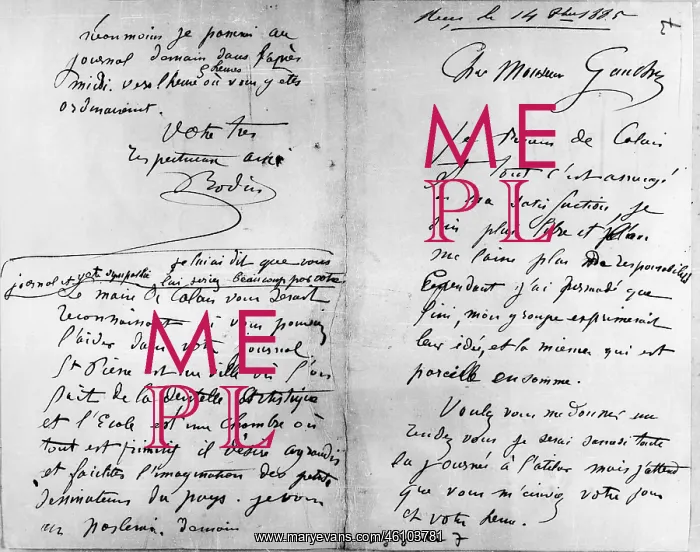 le 14 8bre 1885
Cher Monsieur Gauchez
de Calais
tout s'est arrangé
ma satisfaction, je
suis plus libre et
me laisse plus de responsabilité
Cependant j'ai persuadé que
fini, mon groupe exprimerait
leur idée, et la mienne qui est
pareille en somme.
Voulez vous me donner un
rendez vous je serai samedi toute
la journée à l'atelier mais j'attend
que vous m'écriviez votre jour
et votre heure.
néanmoins je passerai au
journal demain dans l'après
5 heures
midi. vers l'heure où vous y etes
ordinairement.
Votre tres
respectueux ami
Rodin
je lui ai dit que vous
journal et votre sympathie lui seriez beaucoup par votre
Le maire de Calais vous serait
reconnaissant si vous pouviez
l'aider dans votre journal
St Pierre est une ville où l'on
fait de la dentelle Artistique
et l'Ecole est une chambre où
tout est primitif il désire agrandir
et faciliter l'imagination des petits
dessinateurs du pays. je vous
en parlerai demain
ME
PL
ME
PL
www.maryevans.com/46103781